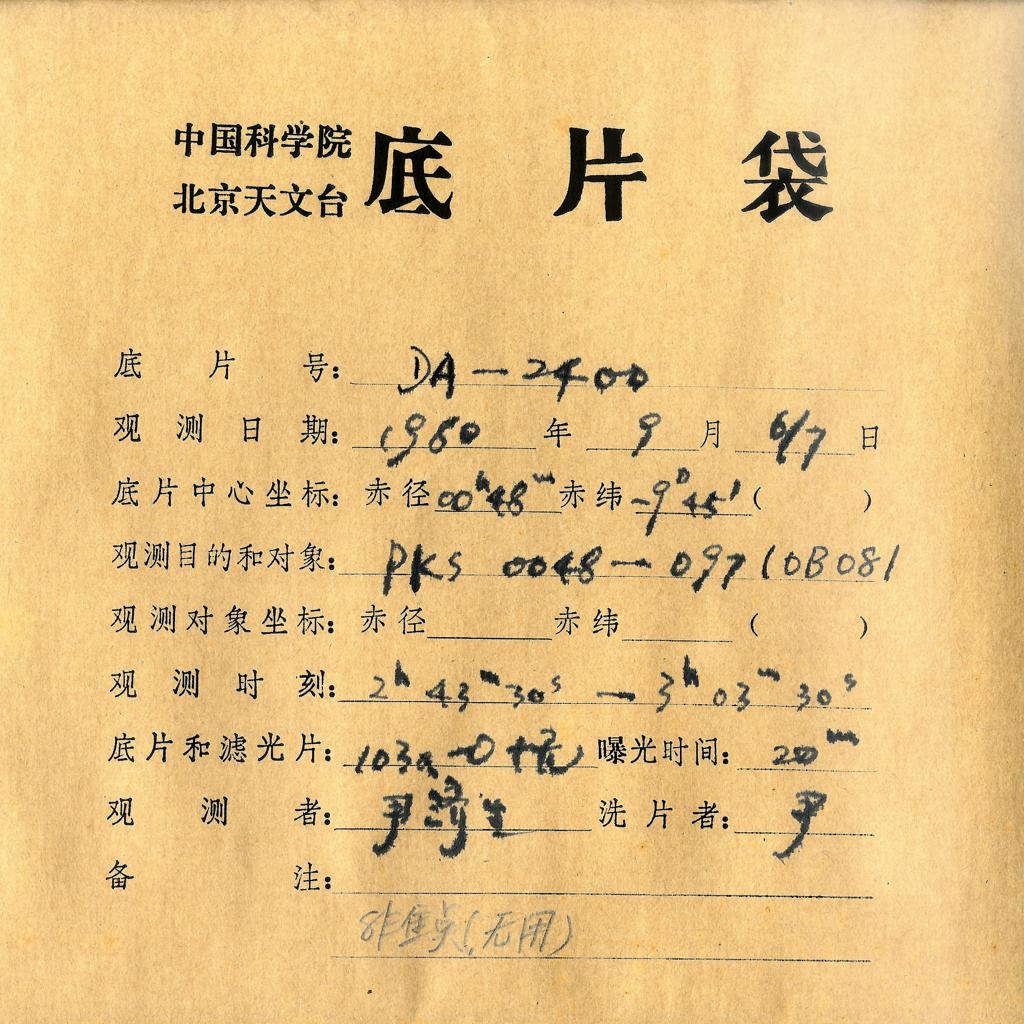 中国科学院
北京天文台
底片袋
底片号: DA-2400
观测日期: 1980年9月6/7日
底片中心坐标: 赤径00h48m赤纬-9°45'( )
观测目的和对象: PKS 0048-097 (OB081
观测对象坐标: 赤径 赤纬 ( )
观测时刻: 2h 43m 30s — 3h 03m 30s
底片和滤光片: 103a-O+ 曝光时间: 20m
观测者: 尹济生 洗片者: 尹
备注:
非焦点(无用)